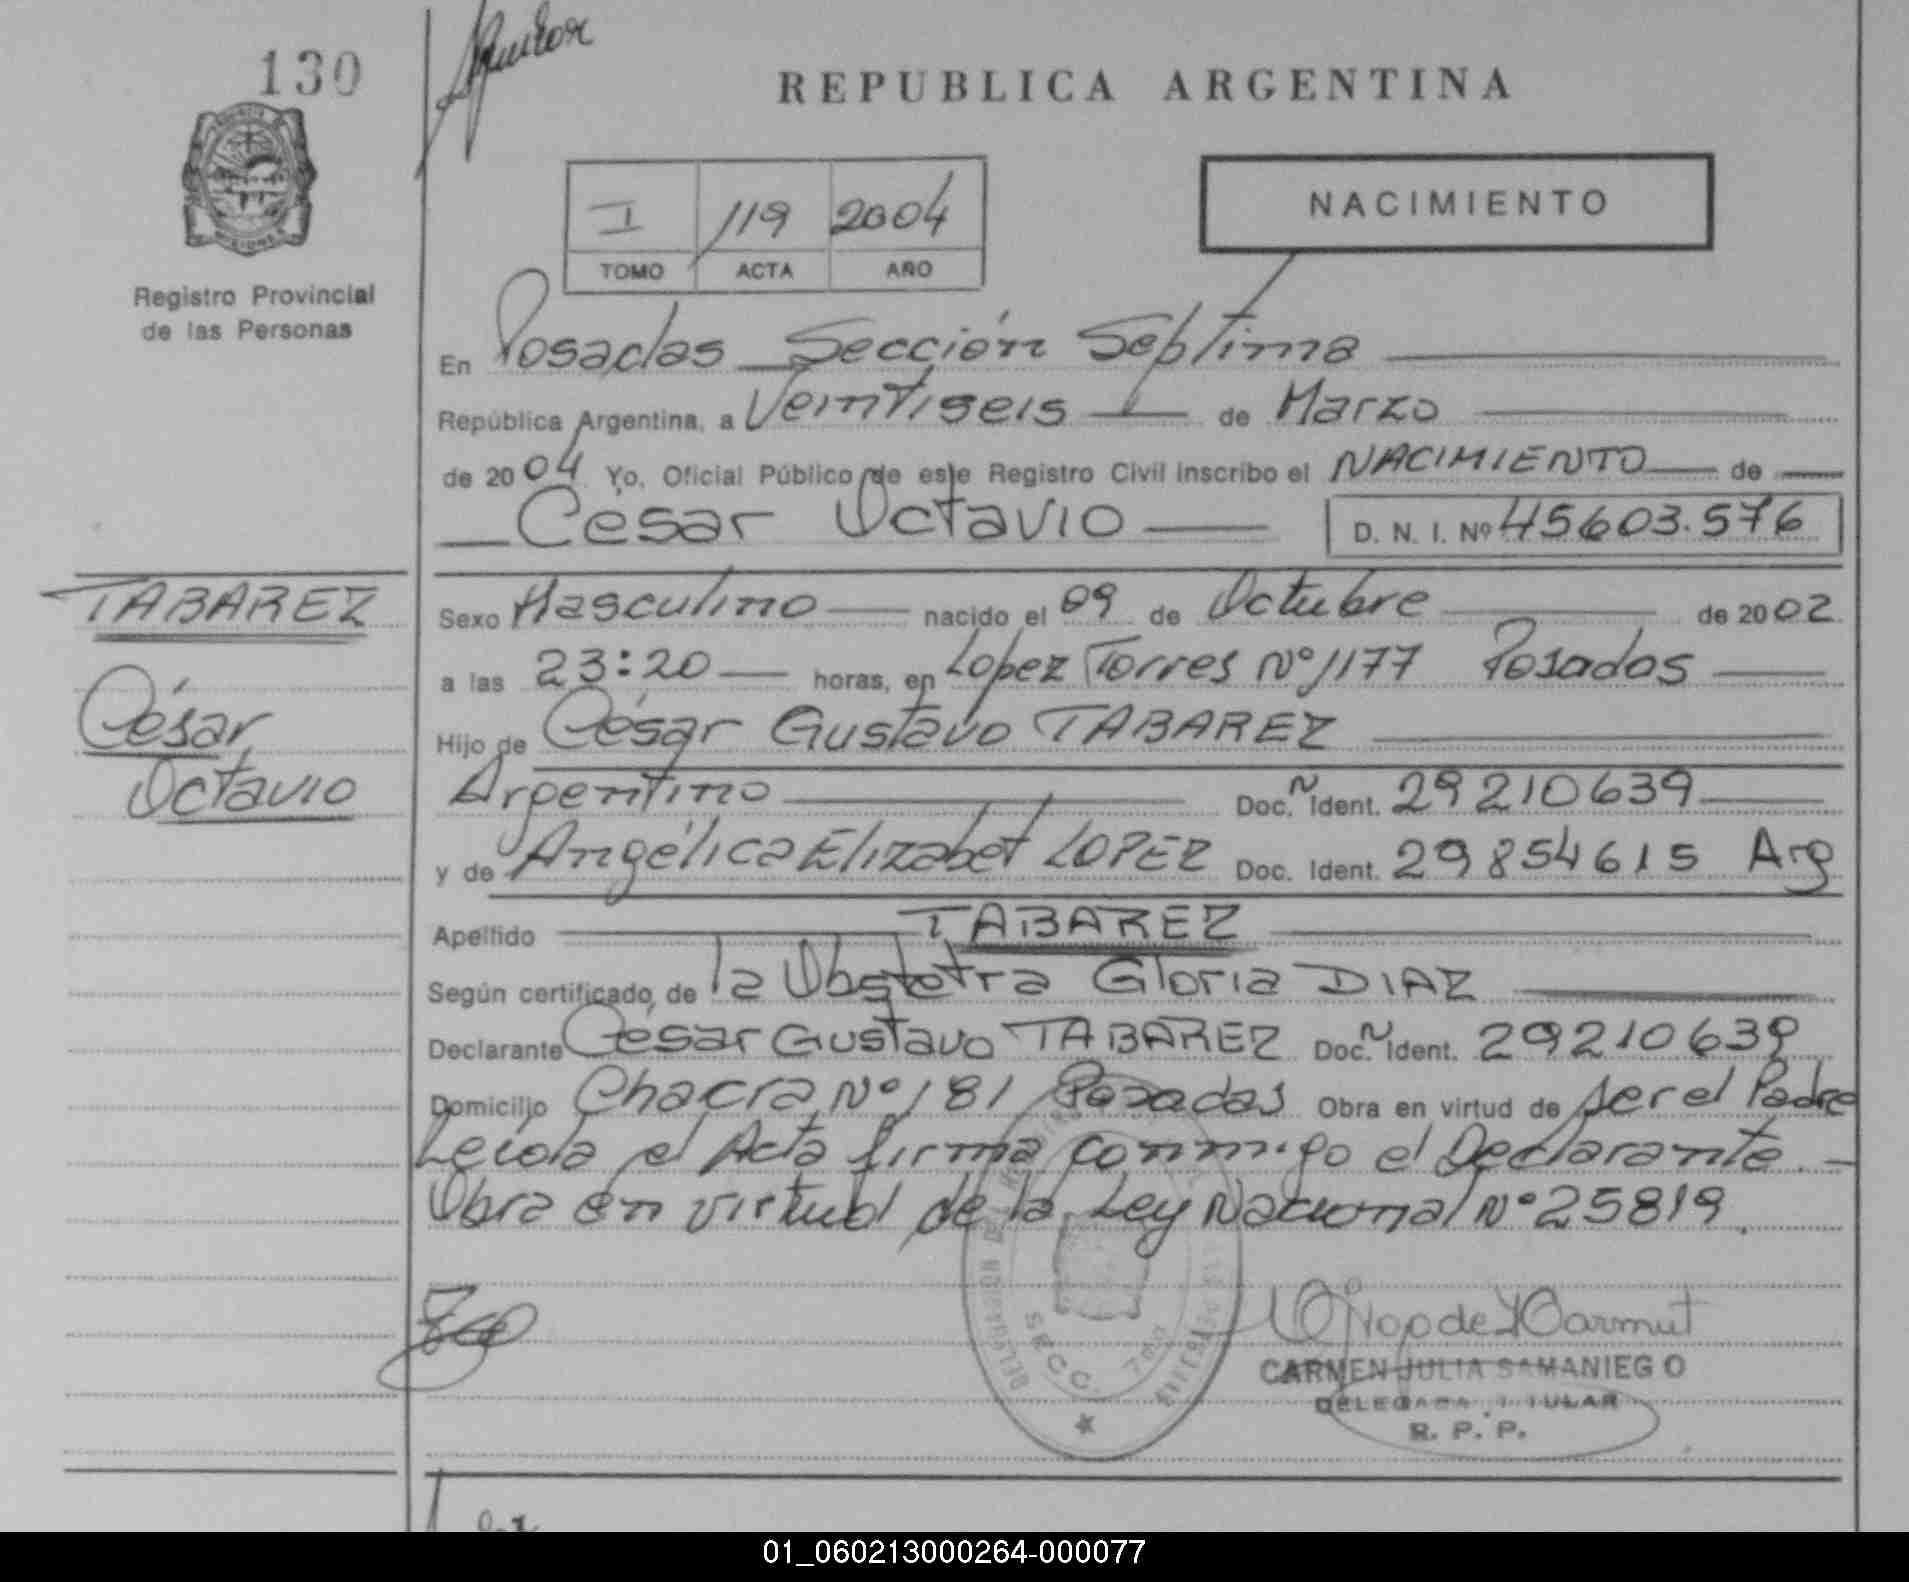 130
REPUBLICA ARGENTINA
NACIMIENTO
I 119 2004
TOMO ACTA AÑO
Registro Provincial
de las Personas
En Posadas Sección Séptima
República Argentina, a Veintiseis de Marzo
de 2004 Yo, Oficial Público de este Registro Civil inscribo el NACIMIENTO de
César Octavio D. N. I. Nº 45603.576
TABAREZ
César
Octavio
Sexo Masculino nacido el 09 de Octubre de 2002
a las 23:20 horas, en Lopez Torres Nº 1177 Posadas
Hijo de César Gustavo TABAREZ
Argentino Doc. Ñ Ident. 29210639
y de Angélica Elizabet LOPEZ Doc. Ident. 29854615 Arg
Apellido TABAREZ
Según certificado de la Obstetra Gloria DIAZ
Declarante César Gustavo TABAREZ Doc. Ñ Ident. 29210639
Domicilio Chacra Nº 181 Posadas Obra en virtud de ser el Padre
Leída el Acta firma conmigo el Declarante.-
Obra en virtud de la Ley Nacional Nº 25819.
SECC. 7ma
CARMEN JULIA SAMANIEGO
DELEGADA TITULAR
R. P. P.
01_060213000264-000077